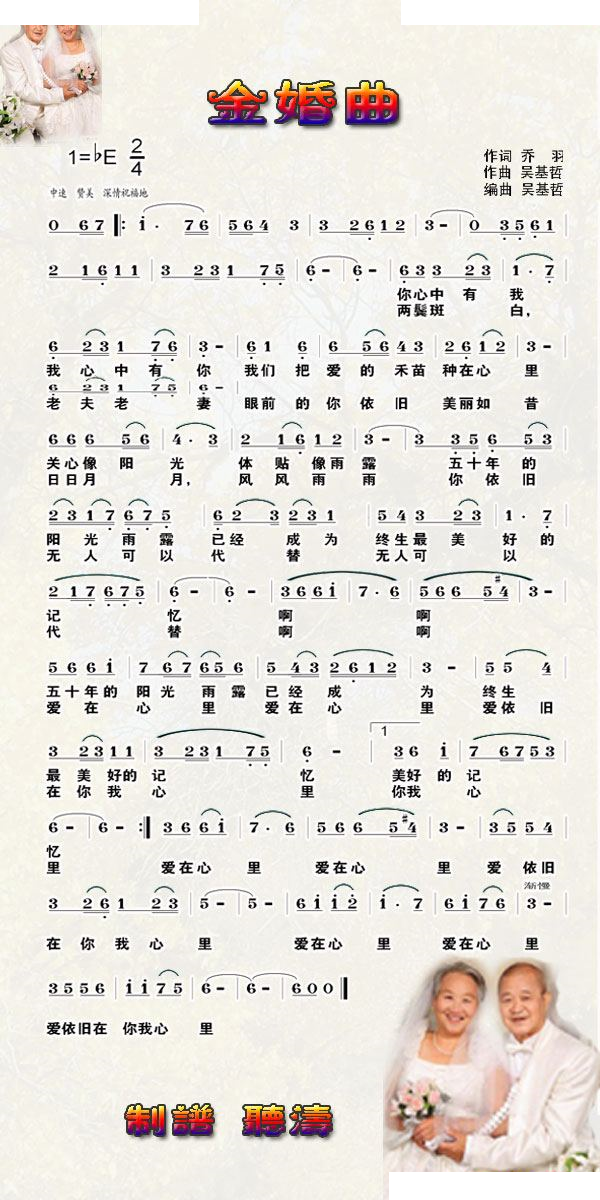 金婚曲
1=♭E 2/4
作词 乔 羽
作曲 吴基哲
编曲 吴基哲
中速 赞美 深情祝福地
0 6 7 |: i · 7 6 | 5 6 4 3 | 3 2 6 1 2 | 3 - | 0 3 5 6 1 |
2 1 6 1 1 | 3 2 3 1 7 5 | 6 - | 6 - | 6 3 3 2 3 | 1 · 7 |
你心中 有 我
两鬓斑 白,
6 2 3 1 7 6 | 3 - | 6 1 6 | 6 5 6 4 3 | 2 6 1 2 | 3 - |
我 心 中 有 你 我们 把 爱 的 禾苗 种在心 里
6 2 3 1 7 5 | 6 -
老 夫 老 妻 眼前 的 你 依 旧 美丽如 昔
6 6 6 5 6 | 4 · 3 | 2 1 6 1 2 | 3 - | 3 3 5 6 5 3 |
关心像 阳 光 体 贴 像雨 露 五十年 的
日日月 月, 风 风 雨 雨 你 依旧
2 3 1 7 6 7 5 | 6 2 3 2 3 1 | 5 4 3 2 3 | 1 · 7 |
阳 光 雨 露 已经 成 为 终生最 美 好 的
无 人 可 以 代 替 无人可 以
2 1 7 6 7 5 | 6 - | 6 - | 3 6 6 i | 7 · 6 | 5 6 6 5 #4 | 3 - |
记 忆 啊 啊
代 替 啊 啊
5 6 6 i | 7 6 7 6 5 6 | 5 4 3 2 6 1 2 | 3 - | 5 5 4 |
五十年 的 阳光 雨 露 已 经 成 为 终 生
爱 在 心 里 爱 在 心 里 爱依 旧
3 2 3 1 1 | 3 2 3 1 7 5 | 6 - | 1 3 6 i | 7 6 7 5 3 |
最 美 好的 记 忆 美好 的 记
在 你 我 心 里 你我 心
6 - | 6 - :| 3 6 6 i | 7 · 6 | 5 6 6 5 #4 | 3 - | 3 5 5 4 |
忆
里 爱在心 里 爱在心 里 爱 依旧
渐慢
3 2 6 1 2 3 | 5 - | 5 - | 6 i i 2 | i · 7 | 6 i 7 6 | 3 - |
在 你 我 心 里 爱在心 里 爱在心 里
3 5 5 6 | i i 7 5 | 6 - | 6 - | 6 0 0 ‖
爱依旧在 你我心 里
制譜 聽濤